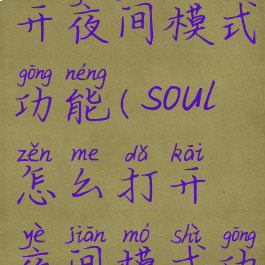 开夜间模式
gōng néng
功能(soul
zěn me dǎ kāi
怎么打开
yè jiān mó shì gōng
夜间模式功